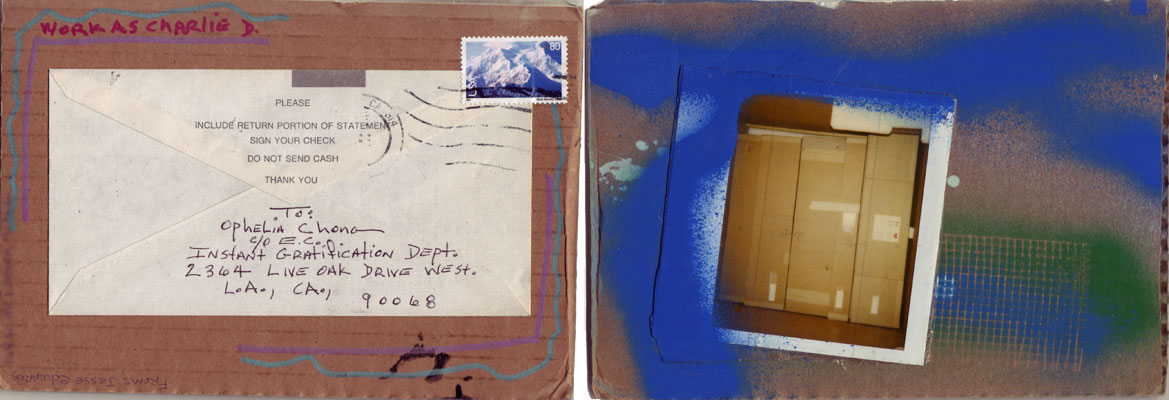 WORK AS CHARLIE D.
80
USA
PLEASE
INCLUDE RETURN PORTION OF STATEMENT
SIGN YOUR CHECK
DO NOT SEND CASH
THANK YOU
TO:
OPHELIA CHONG
c/o E.C.
INSTANT GRATIFICATION DEPT.
2364 LIVE OAK DRIVE WEST.
L.A., CA., 90068
FROM: JESSE EDWARDS